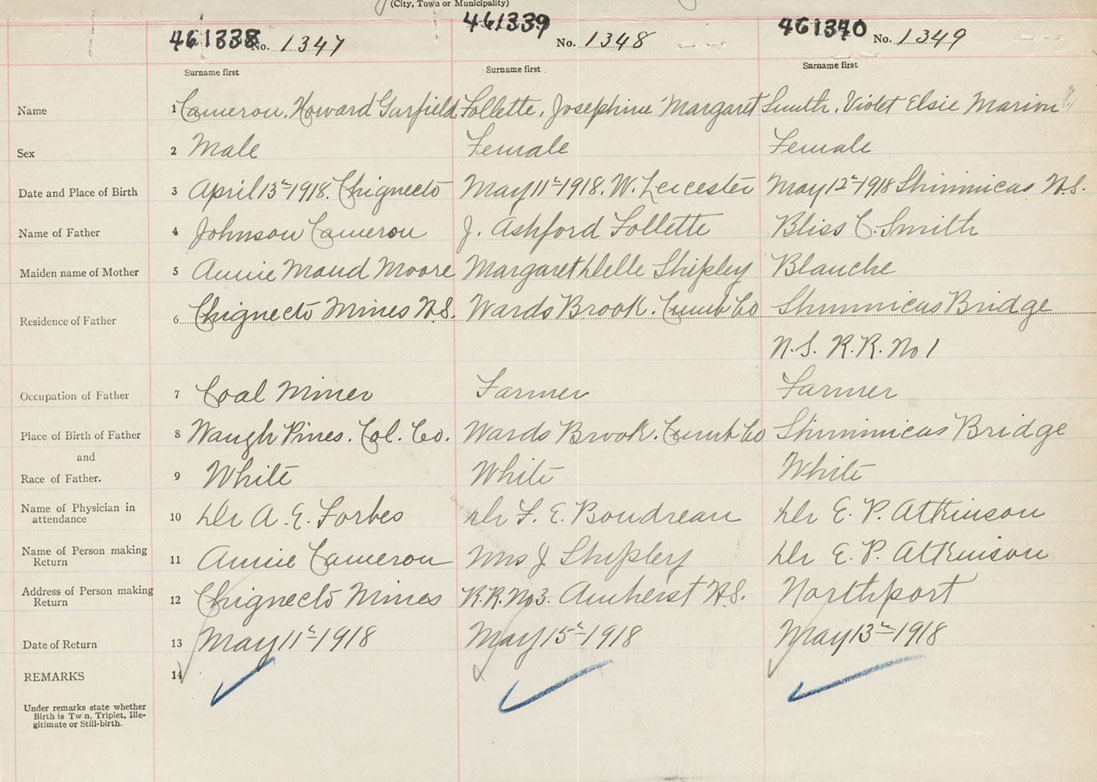 (City, Town or Municipality)
461338 No. 1347 461339 No. 1348 461340 No. 1349
Surname first Surname first Surname first
Name 1 Cameron, Howard Garfield Follette, Josephine Margaret Smith, Violet Elsie Marion
Sex 2 Male Female Female
Date and Place of Birth 3 April 13th 1918. Chignecto May 11th 1918. W. Leicester May 12th 1918 Shinimicas N.S.
Name of Father 4 Johnson Cameron J. Ashford Follette Bliss C. Smith
Maiden name of Mother 5 Annie Maud Moore Margaret Delle Shipley Blanche
Residence of Father 6 Chignecto Mines N.S. Wards Brook. Cumb Co Shinimicas Bridge
N.S. R.R. No 1
Occupation of Father 7 Coal Miner Farmer Farmer
Place of Birth of Father 8 Waugh Pines. Col. Co. Wards Brook. Cumb Co Shinimicas Bridge
and
Race of Father. 9 White White White
Name of Physician in attendance 10 Dr A. E. Forbes Dr F. E. Boudreau Dr E. P. Atkinson
Name of Person making Return 11 Annie Cameron Mrs J Shipley Dr E. P. Atkinson
Address of Person making Return 12 Chignecto Mines R.R. No 3. Amherst N.S. Northport
Date of Return 13 May 11th 1918 May 15th 1918 May 13th 1918
REMARKS 14
Under remarks state whether
Birth is Twin, Triplet, Ille-
gitimate or Still-birth.